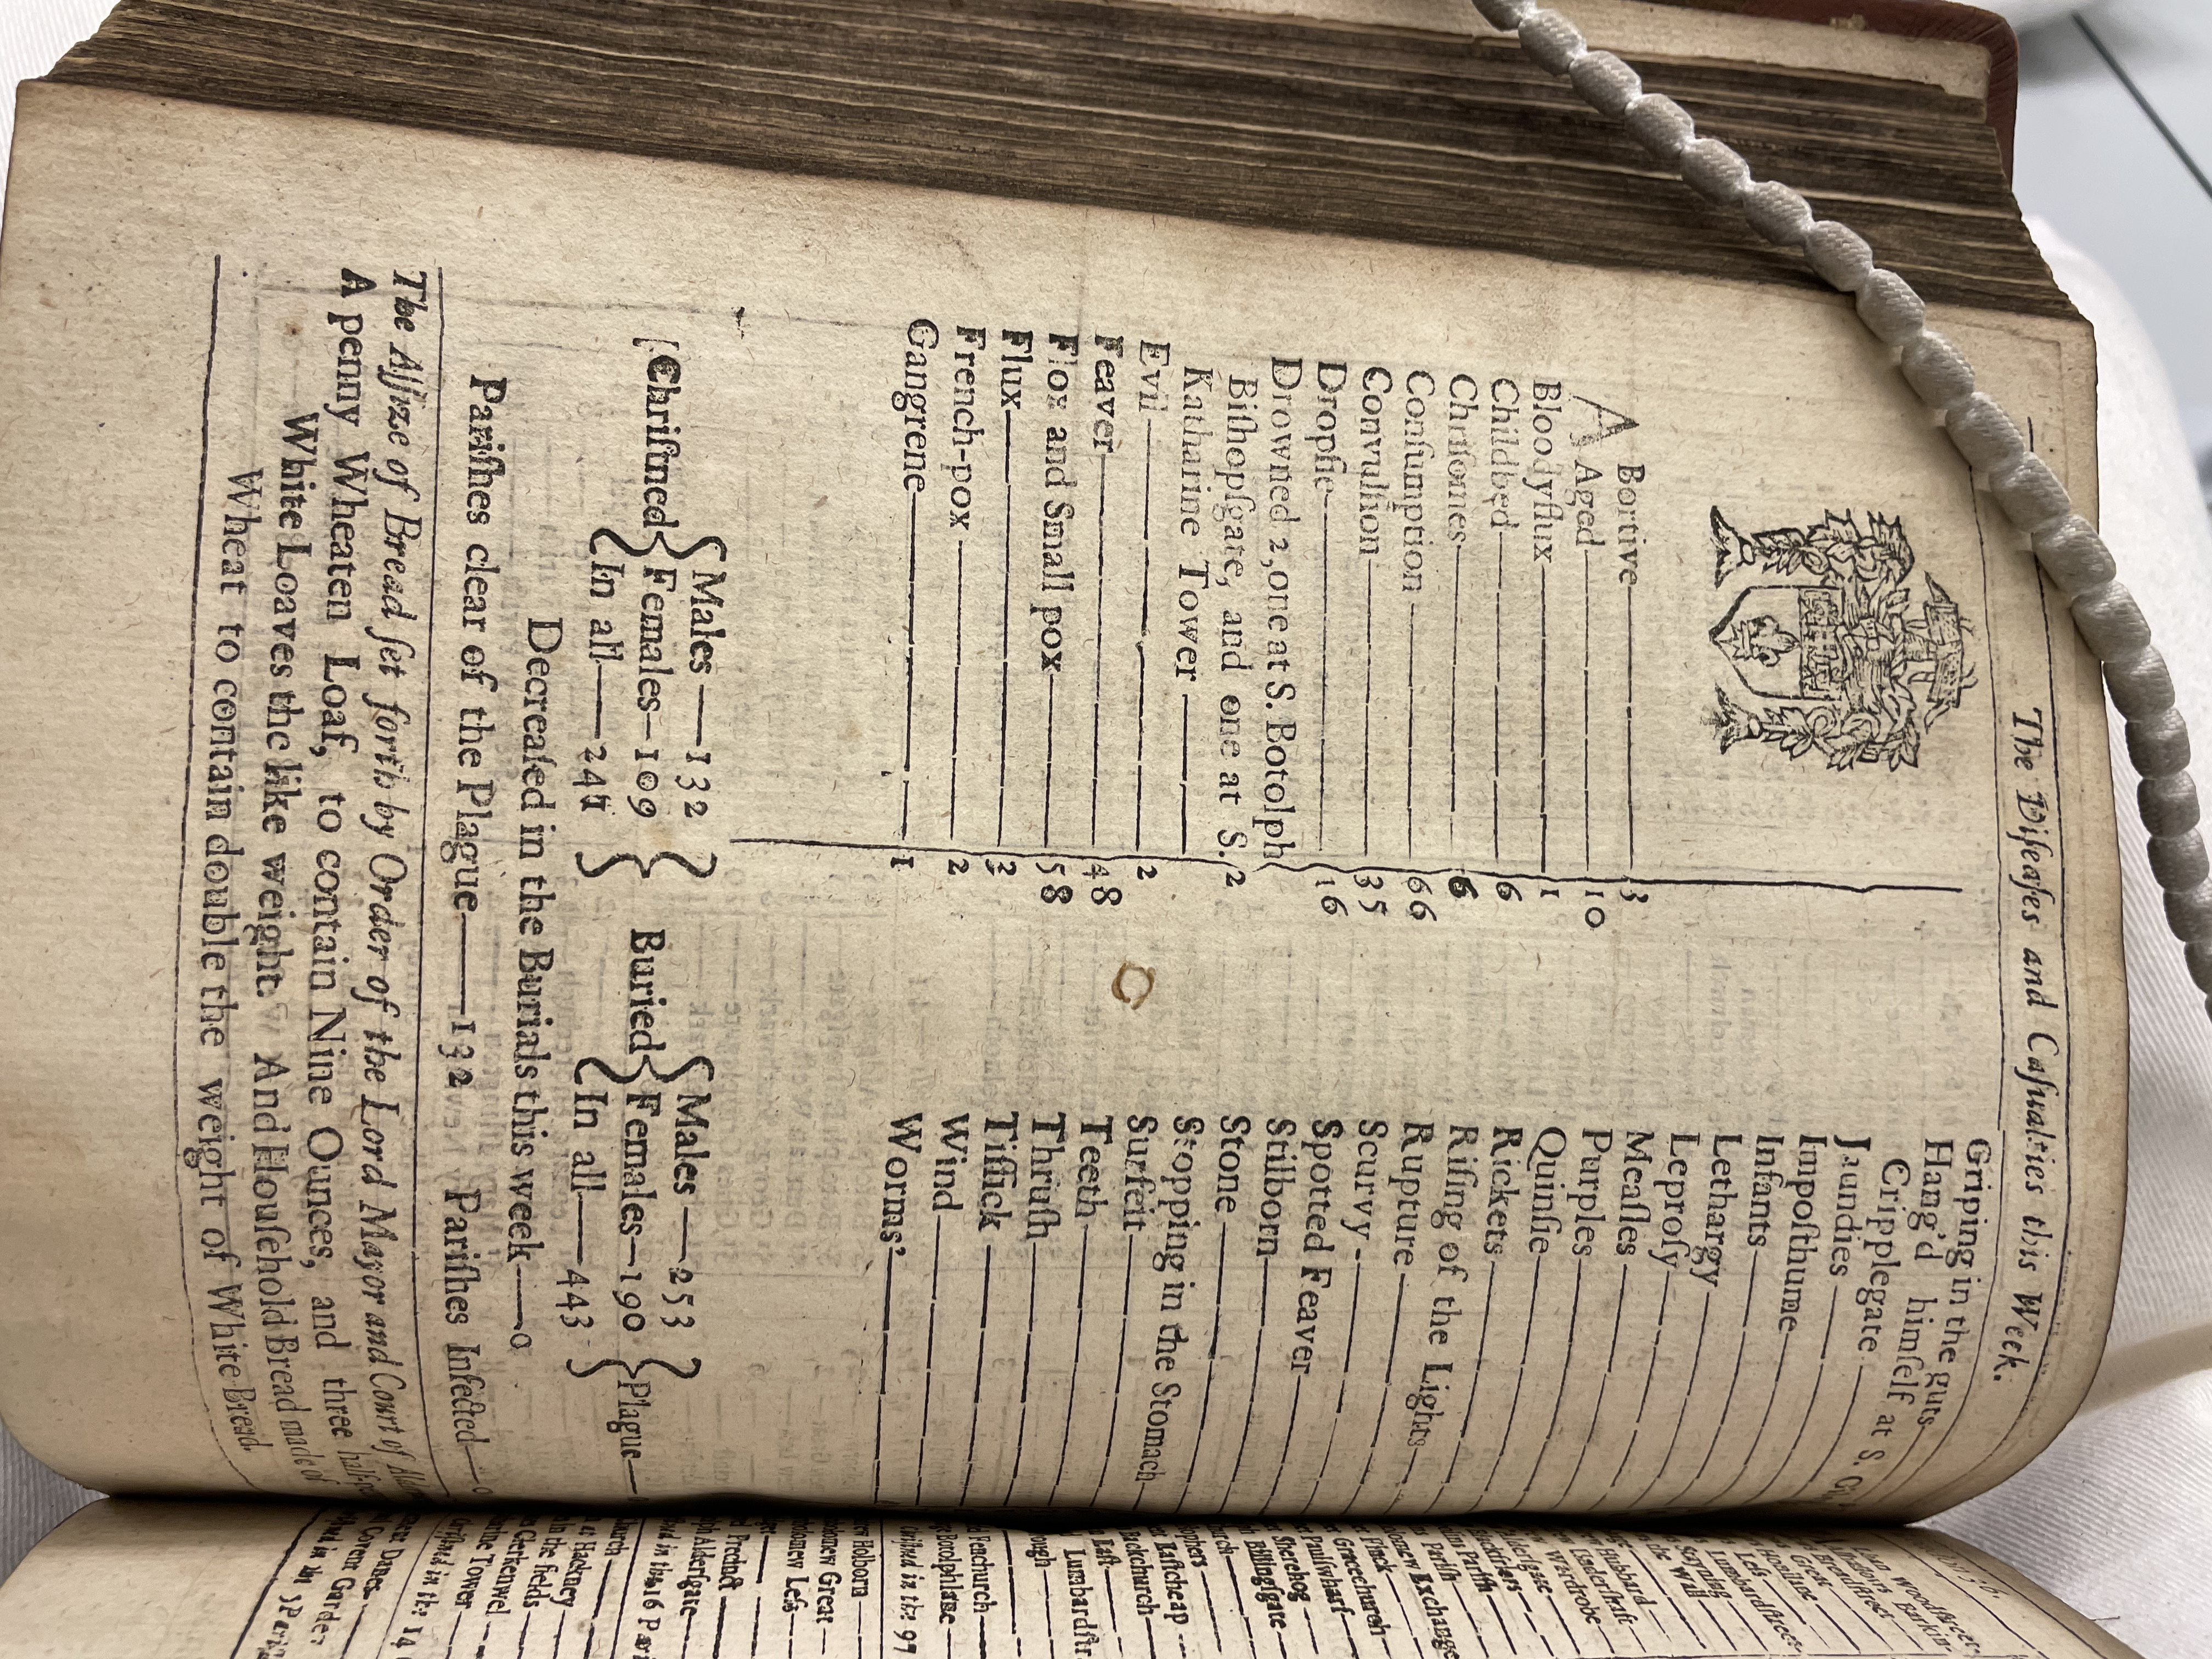 The Diſeaſes and Caſualties this Week.
ABortive 3
Aged 10
Bloodyflux 1
Childbed 6
Chriſomes 6
Conſumption 66
Convulſion 35
Dropſie 16
Drowned 2, one at S. Botolph
Biſhopſgate, and one at S. 2
Katharine Tower
Evil 2
Feaver 48
Flox and Small pox 58
Flux
French-pox 2
Gangrene 1
Griping in the guts
Hang'd himſelf at S.
Cripplegate
Jaundies
Impoſthume
Infants
Lethargy
Leproſy
Meaſles
Purples
Quinſie
Rickets
Riſing of the Lights
Rupture
Scurvy
Spotted Feaver
Stilborn
Stone
Stopping in the Stomach
Surfeit
Teeth
Thruſh
Tiſſick
Wind
Worms
Males 132
[Chriſtned Females 109
In all 241
Males 253
Buried Females 190 Plague
In all 443
Decreaſed in the Burials this week 0
Pariſhes clear of the Plague 132 Pariſhes Infected
The Aſſize of Bread ſet forth by Order of the Lord Mayor and Court of
A penny Wheaten Loaf, to contain Nine Ounces, and three
White Loaves the like weight. And Houſehold Bread made of
Wheat to contain double the weight of White Bread.
Woodſtreet
Breadſtreet
Leſs
Lumbardſtreet
Wardrobe
Exchange
Gracechurch
Paulſwharf
Sherehog
Billingſgate
Eaſtcheap
Backchurch
Fenchurch
Botolphlane
Holborn
Great
Leſs
Precinct
Alderſgate
Hackney
in the fields
Clerkenwel
Tower
Danes
Covent Garden